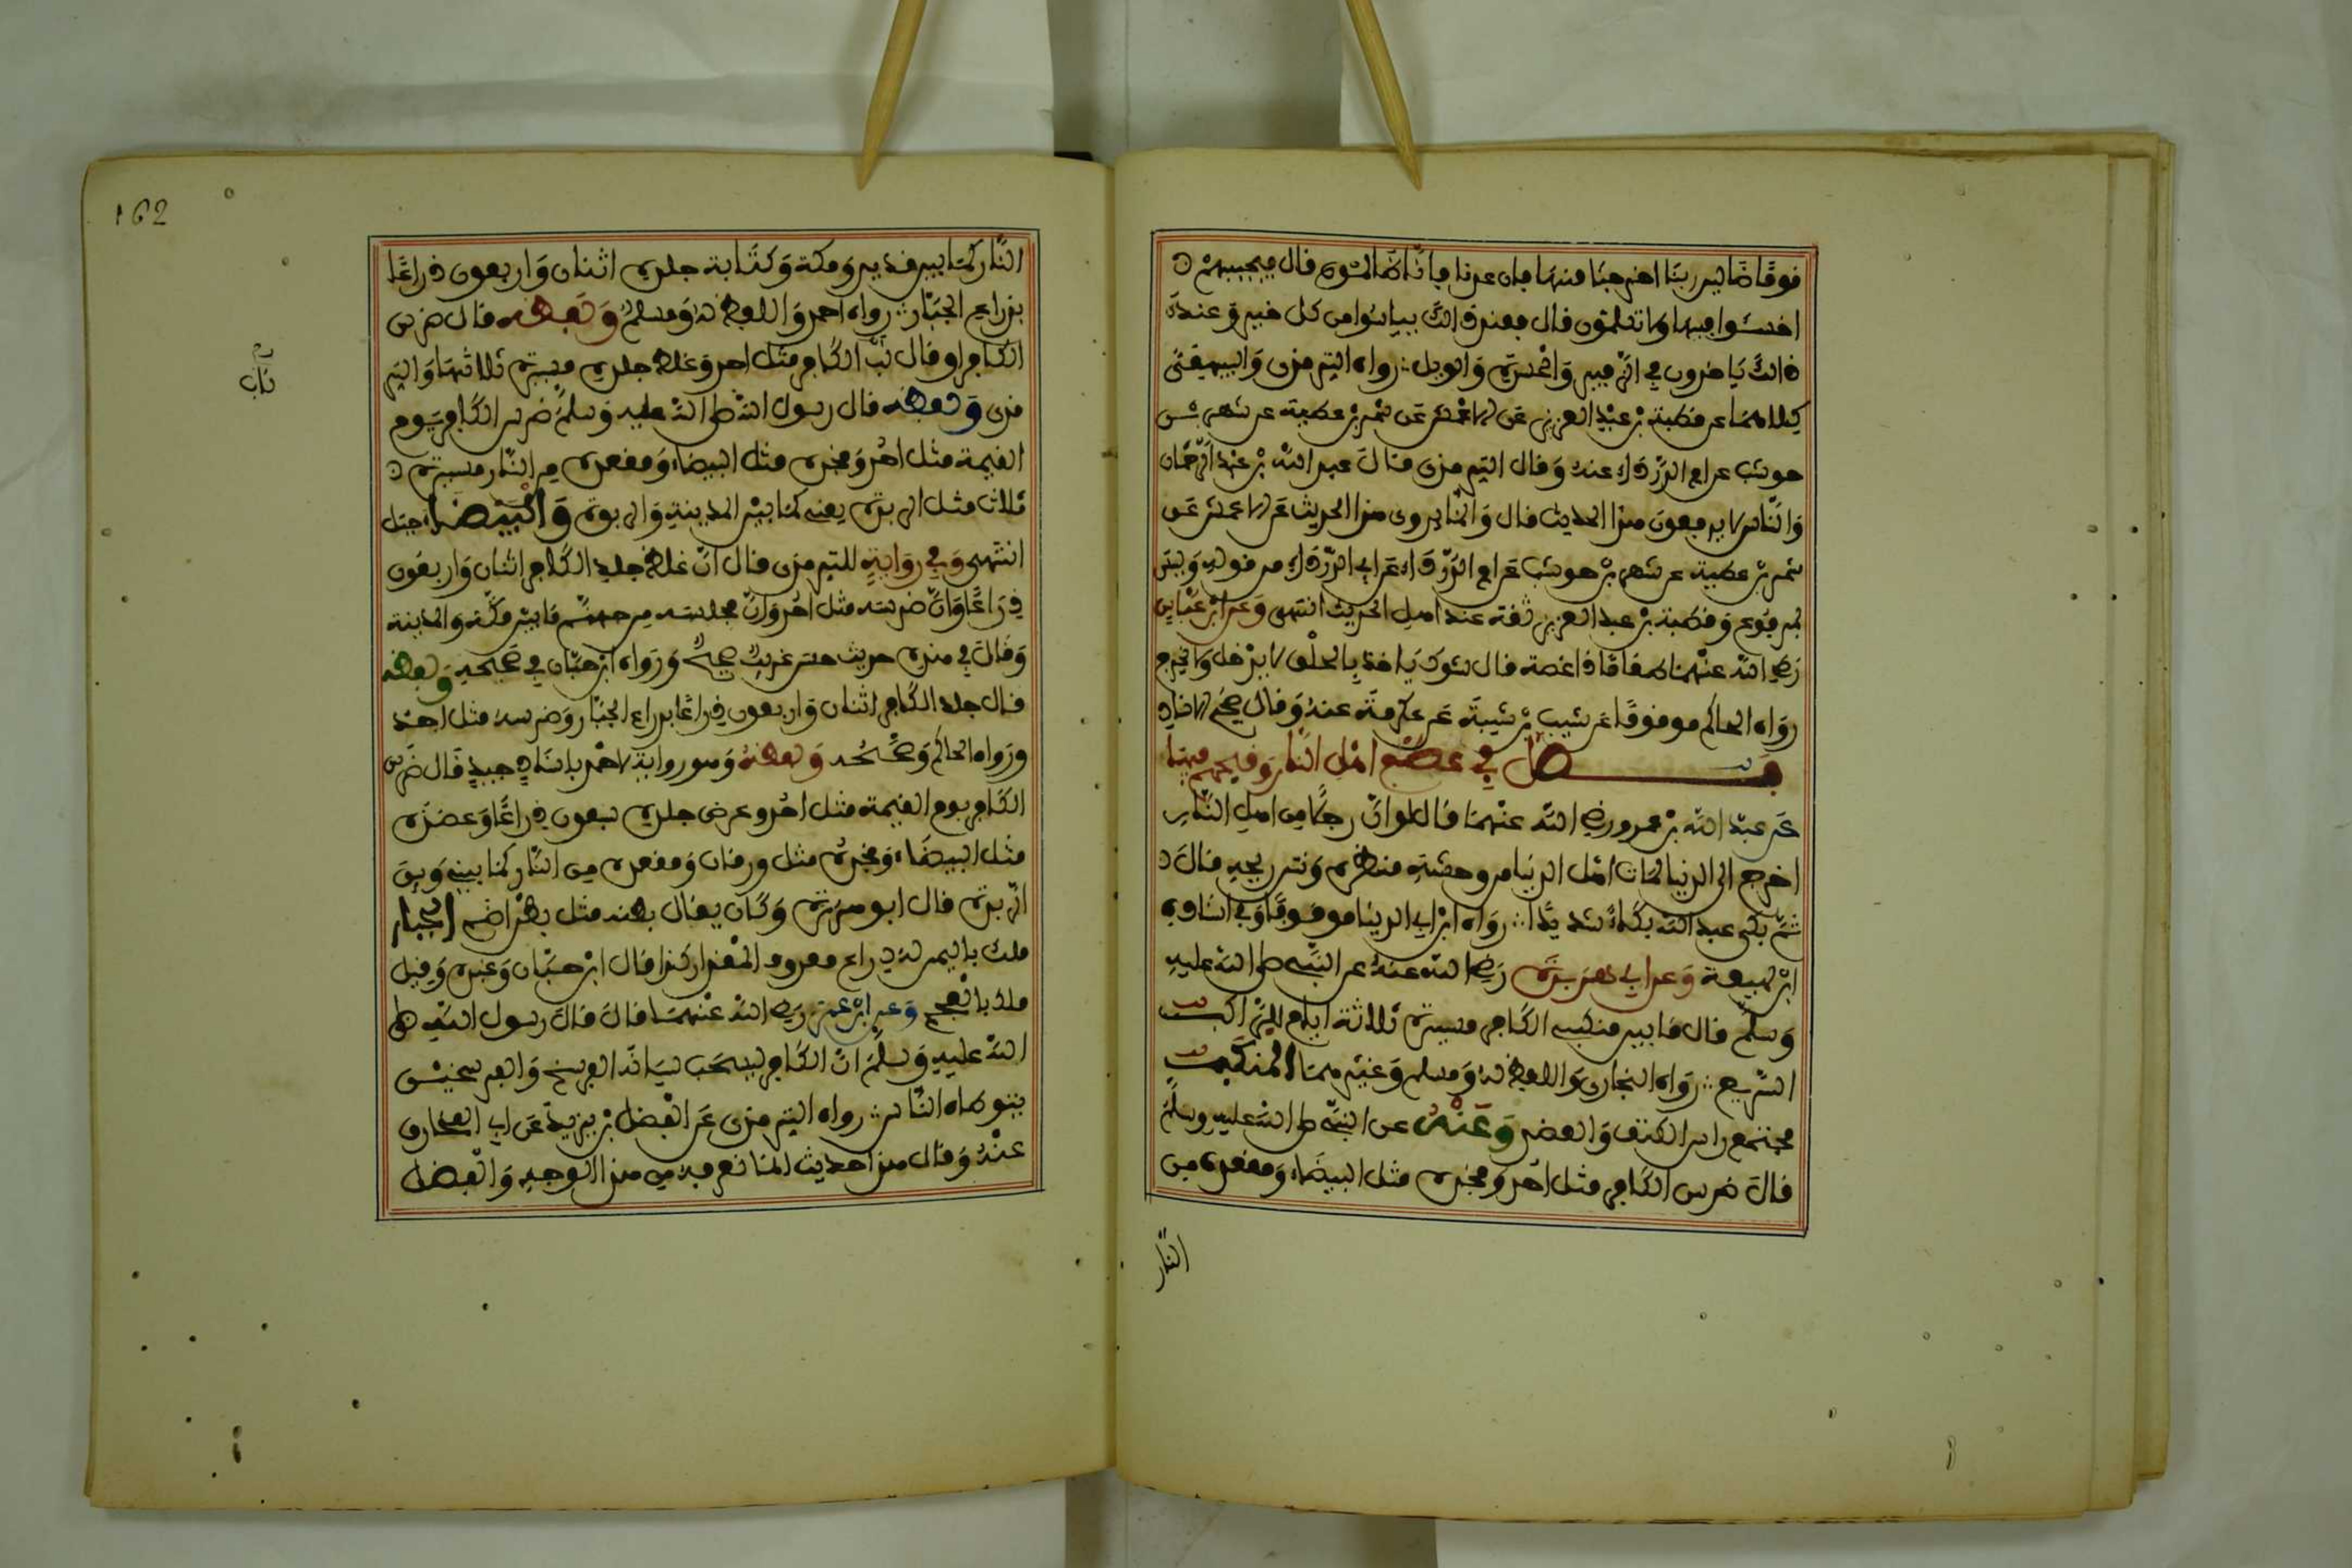 قوما ضالين ربنا اخرجنا منها فان عدنا فانا ظالمون قال فيجيبهم
اخسئوا فيها ولا تكلمون قال فعند ذالك ييأسوا من كل خير وعند
ذالك ياخذون في الزفير والحسرة والويل رواه الترمذي والبيهقي
كلاهما عن قطبة بن عبد العزيز عن الاعمش عن شمر بن عطية عن شهر بن
حوشب عن ام الدرداء عنه وقال الترمذي قال عبد الله بن عبد الرحمان
والناس لا يرفعون هذا الحديث قال وانما يروى هذا الحديث عن الاعمش عن
شمر بن عطية عن شهر بن حوشب عن ام الدرداء عن ابي الدرداء من قوله وليس
بمرفوع وقطبة بن عبد العزيز ثقة عند اهل الحديث انتهى وعن ابن عباس
رضي الله عنهما طعاما ذا غصة قال شوك ياخذ بالحلق لا يدخل ولا يخرج
رواه الحاكم موقوفا عن شبيب بن شيبة عن عكرمة عنه وقال صحيح الاسناد
فصل في عظم اهل النار وقبحهم فيها
عن عبد الله بن عمرو رضي الله عنهما قال لو ان رجلا من اهل النار
اخرج الى الدنيا لمات اهل الدنيا من وحشة منظره ونتن ريحه قال
ثم بكى عبد الله بكاء شديدا رواه ابن ابي الدنيا موقوفا وفي اسناده
ابن لهيعة وعن ابي هريرة رضي الله عنه عن النبي صلى الله عليه
وسلم قال ما بين منكبي الكافر مسيرة ثلاثة ايام للراكب
السريع رواه البخاري واللفظ له ومسلم وغيرهما المنكب
مجتمع راس الكتف والعضد وعنه عن النبي صلى الله عليه وسلم
قال ضرس الكافر مثل احد وفخذه مثل البيضاء ومقعده من
النار
162
النار كما بين قديد ومكة وكثافة جلده اثنان واربعون ذراعا
بذراع الجبار رواه احمد واللفظ له ومسلم ولفظه قال ضرس
الكافر او قال ناب الكافر مثل احد وغلظ جلده مسيرة ثلاث والتر
مذي ولفظه قال رسول الله صلى الله عليه وسلم ضرس الكافر يوم
القيمة مثل احد وفخذه مثل البيضاء ومقعده من النار مسيرة
ثلاث مثل الربذة يعني كما بين المدينة والربذة والبيضاء جبل
انتهى وفي رواية للترمذي قال ان غلظ جلد الكافر اثنان واربعون
ذراعا وان ضرسه مثل احد وان مجلسه من جهنم ما بين مكة والمدينة
وقال في هذه حديث حسن غريب صحيح ورواه ابن حبان في صحيحه ولفظه
قال جلد الكافر اثنان واربعون ذراعا بذراع الجبار وضرسه مثل احد
ورواه الحاكم وصححه ولفظه وهو رواية لاحمد باسناد جيد قال ضرس
الكافر يوم القيمة مثل احد وعرض جلده سبعون ذراعا وعضده
مثل البيضاء وفخذه مثل ورقان ومقعده من النار كما بيني وبين
الربذة قال ابو هريرة وكان يقال بطنه مثل بطن اضم الجبار
ملك باليمن له ذراع معروف المقدار كذا قال ابن حبان وغيره وقيل
ملك بالعجم وعن ابن عمر رضي الله عنهما قال قال رسول الله صلى
الله عليه وسلم ان الكافر ليسحب لسانه الفرسخ والفرسخين
يتوطاه الناس رواه الترمذي عن الفضل بن يزيد عن ابي المخارق
عنه وقال هذا حديث انما نعرفه من هذا الوجه والفضل
ناب